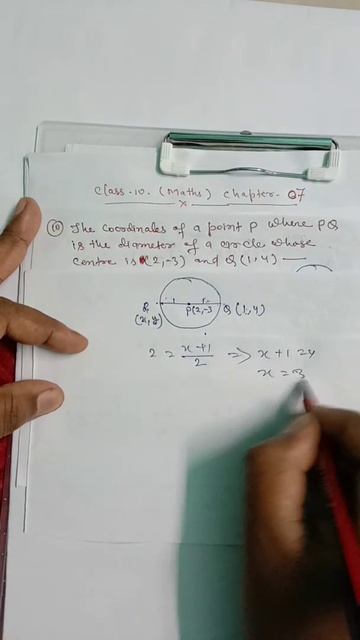 Class-10. (Maths) Chapter-07
x
(10) The coordinates of a point P where PQ
is the diameter of a circle whose
centre is (2,-3) and Q(1,4) —
P(2,-3 Q (1,4)
(x,y)
2 = x+1/2 => x+1 = 4
x = 3